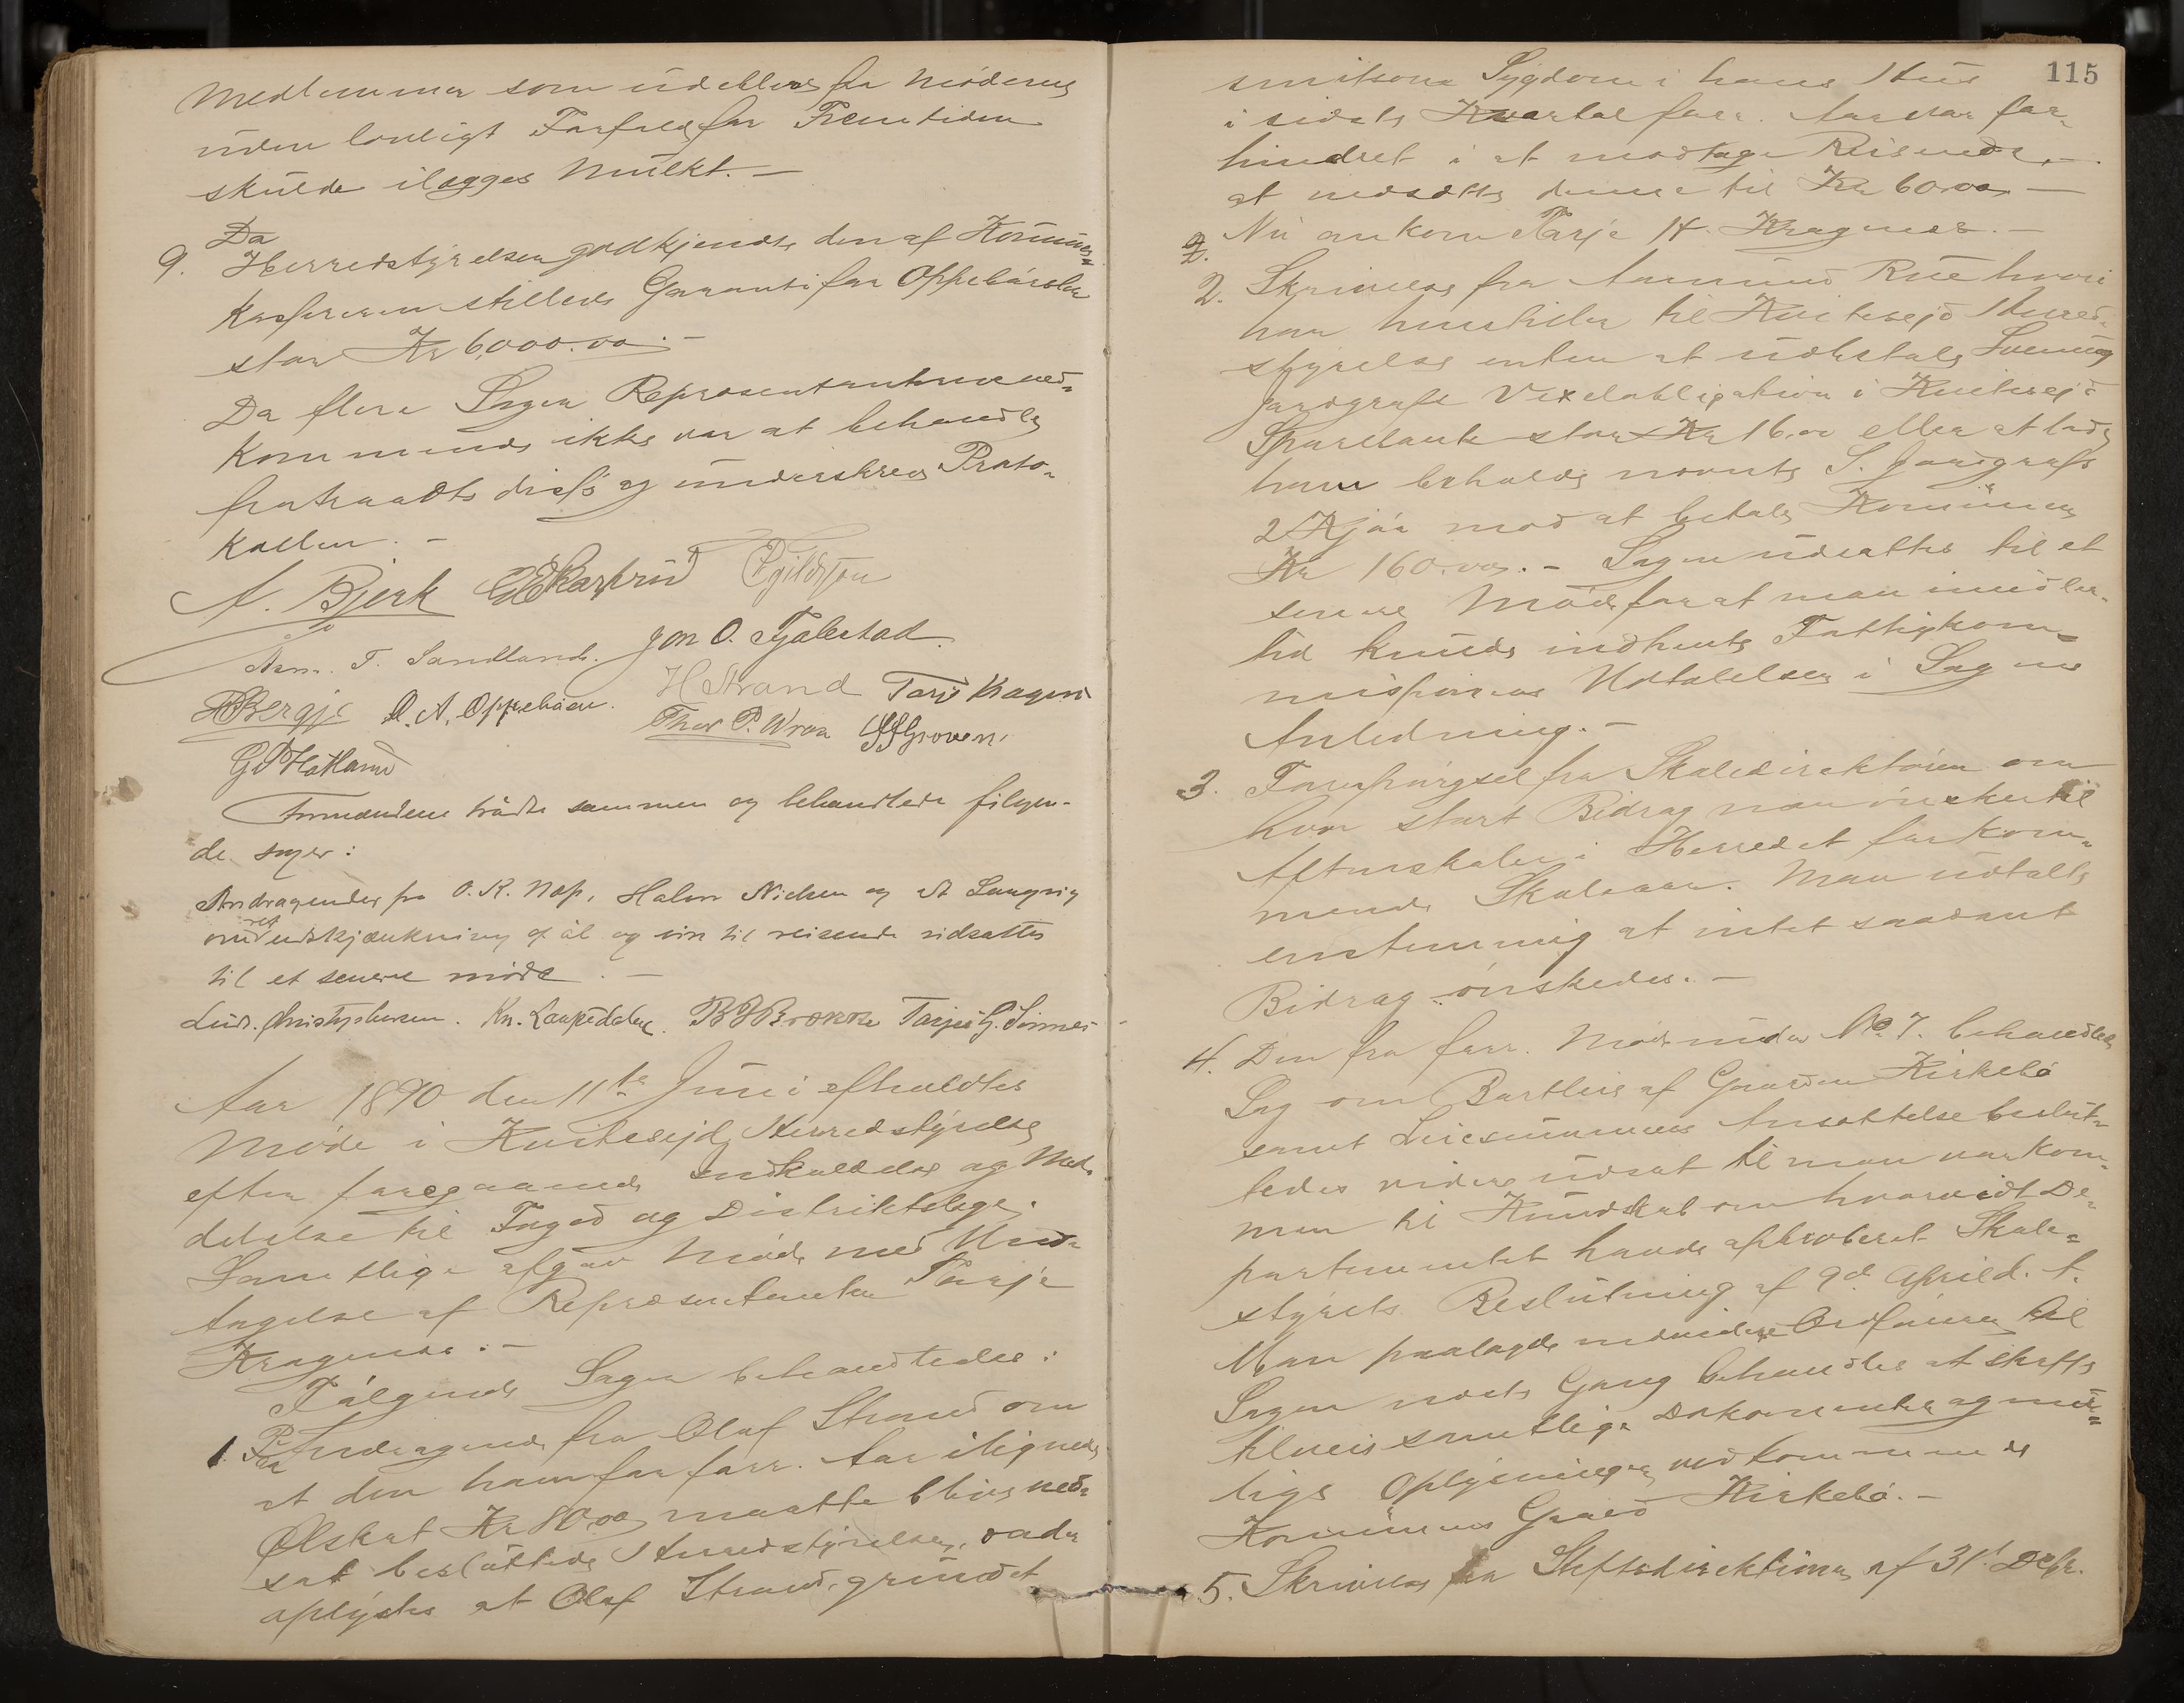 Medlemmer som udeblev fra Møderne
uden lovligt Forfald for Fremtiden
skulde ilægges Mulkt. —
Da
9. Herredstyrelsen godkjendte den af Kommune=
kassereren stillede Garanti for Oppebørsler
stor Kr 6,000.00. —
Da flere Sager Repræsentanterne ved=
kommende ikke var at behandle
fratraadte disse og underskrev Proto=
kollen. —
A. Bjerk
Aan. T. Sandland. Jon O. Tjalestad.
H Strand Tarje Kragnes
HBergje O. A. Oppebøen. Thor P. Wraa Groven.
Hatland
Formændene trådte sammen og behandlede følgen-
de sager:
Andragender fra O. K. Nap, Halvor Nielsen og A Langvig
om ret udskjænkning af øl og vin til reisende udsattes
til et senere møde. —
Ludv. Christophersen. Kn. Laupedalen. Tarjei G. Sinnes
Aar 1890 den 11te Juni afholdtes
Møde i Kvitesejd Herredstyrelse
efter foregaaende Indkaldelse og Med=
delelse til Foged og Distriktslæge.
Samtlige afgav Møde med Und=
tagelse af Repræsentanten Tarje
Kragenes. —
Følgende Sager behandledes:
1. Paa Andragende fra Olaf Strand om
at den ham for forr. Aar ilignede
Ølskat Kr 80,00 maatte blive ned=
sat besluttede Herredstyrelsen, da det
oplystes at Olaf Strand, grundet
115
smitsom Sygdom i hans Hus
i sidste Kvartal forr. Aar var for=
hindret i at modtage Reisende, —
at nedsætte denne til Kr 60.00 —
Nu ankom Tarje H. Kragnes. —
2.
2. Skrivelse fra Aamund Rue hvori
han henstiller til Kvitesejd Herred=
styrelse enten at udbetale Svenung
Jordgrafs Vexelobligation i Kvitesejd
Sparebank stor Kr 16.00 eller at lade
ham beholde nævnte S. Jordgrafs
2 Kjør mod at betale Kommunen
Kr 160.00. — Sagen udsattes til et
senere Møde for at man imidler=
tid kunde indhente Fattigkom=
missionens Udtalelser i Sagens
Anledning. —
3. Forespørgsel fra Skoledirektøren om
hvor stort Bidrag man ønsker til
Aftenskoler i Herredet for kom=
mende Skoleaar. Man udtalte
enstemmig at intet saadant
Bidrag ønskedes. —
4. Den fra forr. Møde under No 7. behandlede
Sag om Bortleie af Gaarden Kirkebø
samt Leiesummens Ansættelse beslut=
tedes videre udsat til man var kom=
men til Kundskab om hvorvidt De=
partementet havde approberet Skole=
styrets Beslutning af 9de April d. A.
Man paalagde endvidere Ordføreren til
Sagen næste Gang behandles at skaffe
tilveie samtlige Dokumenter og mu=
lige Oplysninger vedkommende
Kommunens Gaard Kirkebø. —
5. Skrivelse fra Stiftsdirektionen af 31te Decbr.